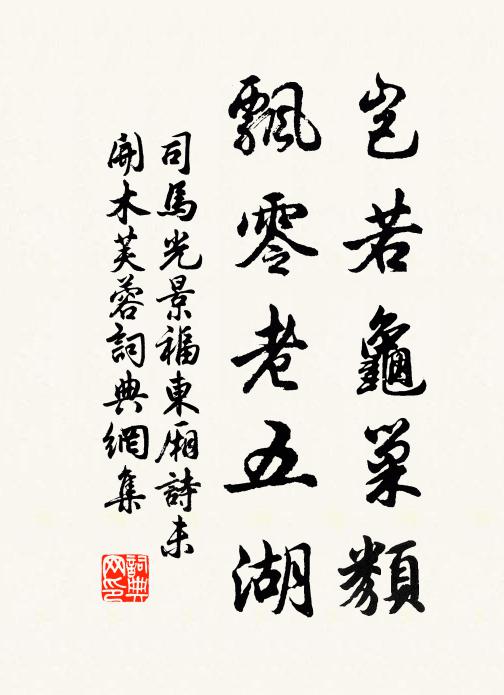 豈若龜巢類
飄零老五湖
司馬光景福東厢詩未
開木芙蓉詞典網集
詞典
网印